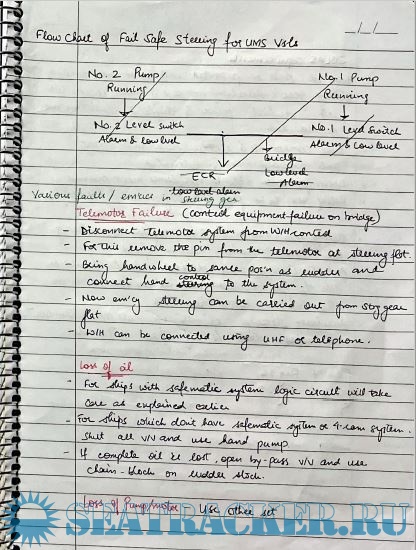 Flow Chart of Fail Safe Steering for UMS Vsls
No. 2 Pump
Running
No. 1 Pump
Running
No. 2 Level switch
Alarm & Low level
No. 1 Level Switch
Alarm & Low level
ECR
Low level alarm
Bridge
Low level
Alarm
Various faults / in steering gear
Telemotor Failure (control equipment failure on bridge)
- Disconnect telemotor system from W/H control
- For this remove the pin from the telemotor at steering flat.
- Being handwheel to same pos'n as rudder and
connect hand control steering to the system.
- Now em'cy steering can be carried out from stg gear
flat
- W/H can be connected using UHF or telephone.
Loss of oil
- For ships with safematic system logic circuit will take
care as explained earlier
- For ships which dont have safematic system or 4-ram system.
Shut all V/V and use hand pump
- If complete oil is lost, open by-pass V/V and use
chain-block on rudder stock.
Loss of Pump/motor Use other set
SEATRACKER.RU